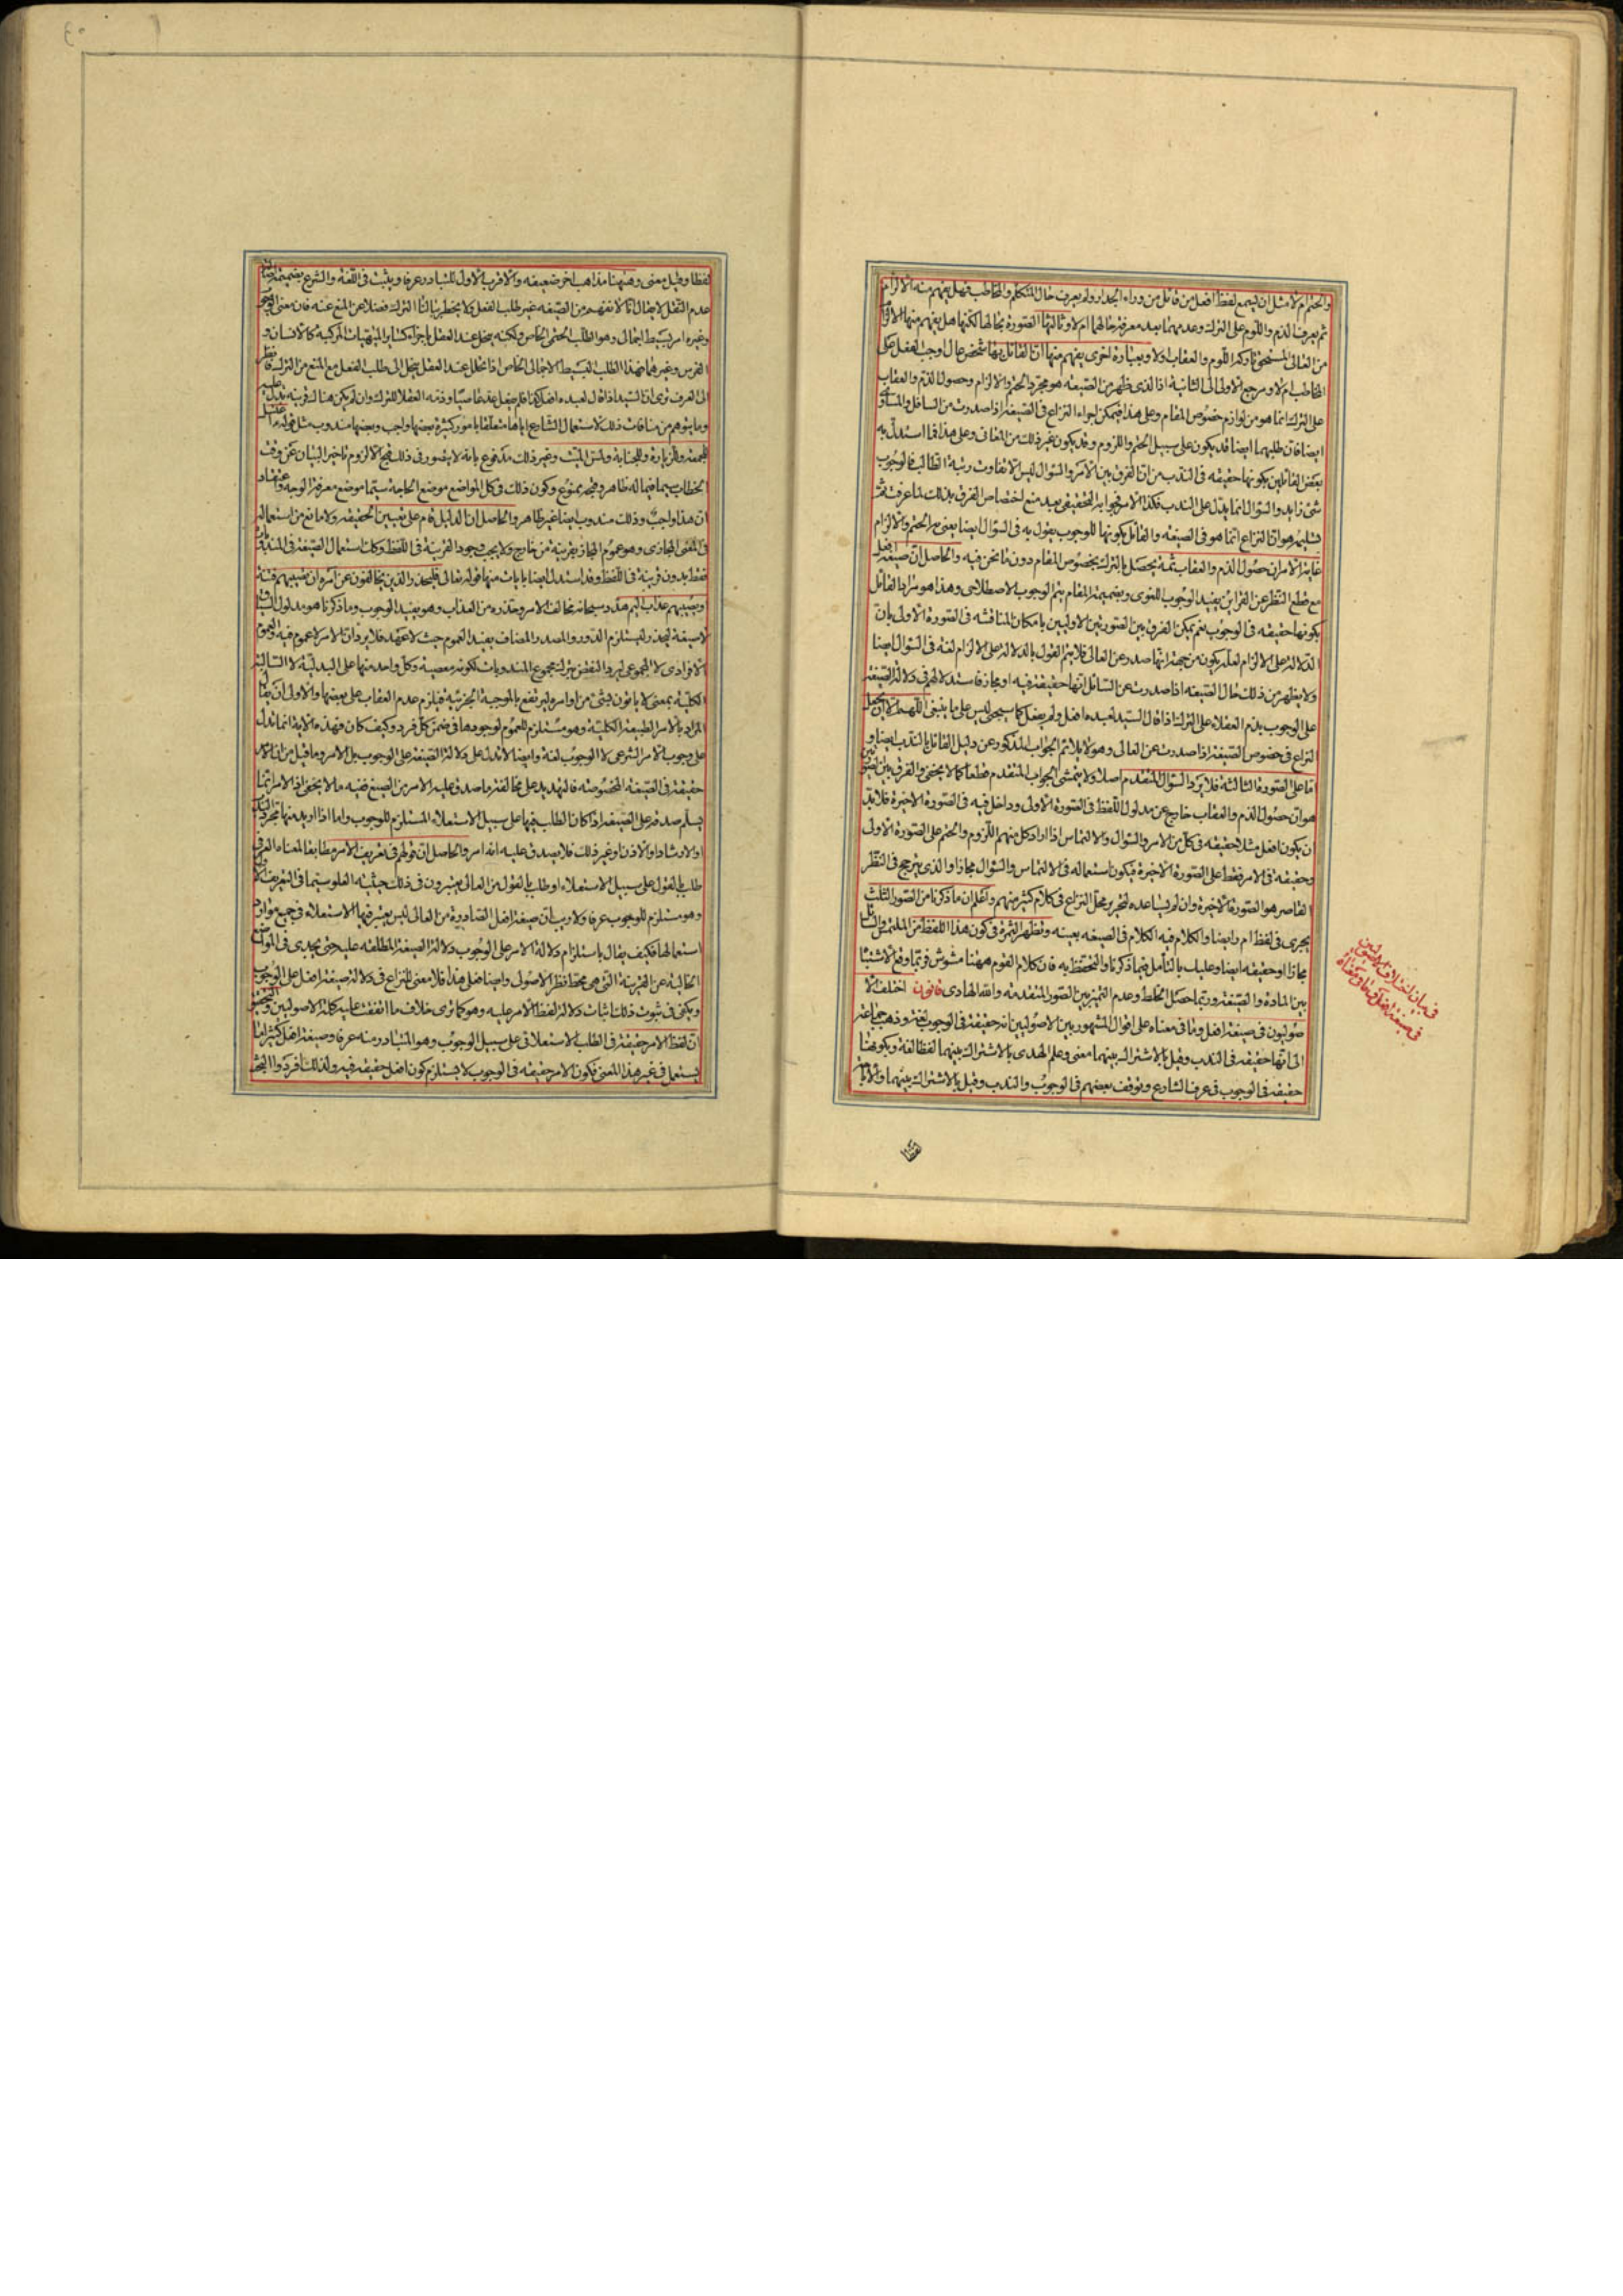 والحتم ام لا مثل ان يسمع لفظ افعل من قائل من وراء الجدار ولم يعرف حال المتكلم والمخاطب فهل يفهم منه الالزام
ثم يعرف الذم واللوم على الترك وعدمهما بعد معرفة حالهما ام لا وثالثها الصورة بحالها لكنها هل يفهم منها
من العالى المستحق تاركه اللوم والعقاب ولا وبعبارة اخرى يفهم منها ان القائل بها شخص عال اوجب الفعل على
المخاطب ام لا ومرجع الاولى الى الثانية اذ الذى يظهر من الصيغه هو مجرد الحتم والالزام وحصول الذم والعقاب
على الترك انما هو من لوازم خصوص المقام وعلى هذا فيمكن اجراء النزاع فى الصيغة اذا صدرت من السافل والمساوى
ايضا فان طلبهما ايضا قد يكون على سبيل الحتم واللزوم وقد يكون غير ذلك من المعانى وعلى هذا فما استدل به
بعض القائلين بكونها حقيقه فى الندب من ان الفرق بين الامر والسؤال ليس الا تفاوت رتبة الطالب فالوجوب
شئ زايد والسؤال انما يدل على الندب فكذا الامر فجوابه التحقيقى بعد منع اختصاص الفرق بذلك لما عرفت
تسليمه هو ان النزاع انما هو فى الصيغه والقائل بكونها للوجوب يقول به فى السؤال ايضا يعنى الحتم والالزام
غاية الامر ان حصول الذم والعقاب ثمة يحصل بالترك بخصوص المقام دون ما نحن فيه والحاصل ان صيغة افعل
مع قطع النظر عن القراين يفيد الوجوب اللغوى وبضميمة المقام يتم الوجوب الاصطلاحى وهذا هو مراد القائل
بكونها حقيقه فى الوجوب نعم يمكن الفرق بين الصورتين الاوليين بامكان المناقشه فى الصورة الاولى بان
الدلاله على الالزام لعله يكون من جهة انها صدر عن العالى فلا يتم القول بالدلاله على الالزام لغة فى السؤال ايضا
ولا يظهر من ذلك حال الصيغه اذا صدرت عن السائل انها حقيقة فيه او مجاز فاستدلالهم فى دلالة الصيغة
على الوجوب بذم العقلاء على الترك اذا قال السيد لعبده افعل ولم يفعل كما سيجئ ليس على ما ينبغى اللهم الا ان يجعل
النزاع فى خصوص الصيغة اذا صدرت عن العالى وهو لا يلائم الجواب المذكور عن دليل القائل بالندب ايضا و
اما على الصورة الثالثة فلا يرد السؤال المتقدم اصلا ولا يتمشى الجواب المتقدم قطعا كما لا يخفى والفرق بين
هو ان حصول الذم والعقاب خارج عن مدلول اللفظ فى الصورة الاولى وداخل فيه فى الصورة الاخيرة فلا بد
ن يكون افعل مثلا حقيقه فى كل من الامر والسؤال والالتماس اذا اراد كل منهم اللزوم والحتم على الصورة الاولى
وحقيقه فى الامر فقط على الصورة الاخيرة فيكون استعماله فى الالتماس والسؤال مجازا والذى يترجح فى النظر
القاصر هو الصورة الاخيرة وان لم يساعده تحرير محل النزاع فى كلام كثير منهم واعلم ان ما ذكرنا من الصور الثلث
يجرى فى لفظ ام ر ايضا والكلام فيه الكلام فى الصيغه بعينه وتظهر الثمرة فى كون هذا اللفظ من الملتمس والسائل
مجازا او حقيقه ايضا وعليك بالتأمل فيما ذكرنا والتحفظ به فان كلام القوم ههنا مشوش فربما وقع الاشتباه
بين المادة والصيغة وربما حصل الخلط وعدم التميز بين الصور المتقدمة والله الهادى قانون اختلف الا
صوليون فى صيغة افعل وما فى معناه على اقوال المشهور بين الاصوليين انه حقيقة فى الوجوب لغة وذهب جماعة
الى انها حقيقه فى الندب وقيل بالاشتراك بينهما معنى وعلم الهدى بالاشتراك بينهما لفظا لغة وبكونها
حقيقة فى الوجوب فى عرف الشارع وتوقف بعضهم فى الوجوب والندب وقيل بالاشتراك بينهما والاباحة
فى بيان اختلاف الاصوليين
فى صيغة افعل وما فى معناه
لفظا وقيل معنى وههنا مذاهب اخر ضعيفه والاقرب الاول للتبادر عرفا ويثبت فى اللغة والشرع بضميمة اصالة
عدم النقل لا يقال انا لا نفهم من الصيغه غير طلب الفعل ولا يخطر ببالنا الترك فضلا عن المنع عنه فان معنى الوجوب
وغيره امر بسيط اجمالى وهو الطلب الحتمى الخاص ولكنه يحل عند العقل باجزاء كساير المهيات المركبة كالانسان و
الفرس وغيرهما فهذا الطلب البسيط الاجمالى الخاص اذا تحلل عند العقل ينحل الى طلب الفعل مع المنع من الترك فانظر
الى العرف ترى ان السيد اذا قال لعبده افعل كذا فلم يفعل عد عاصيا وذمه العقلا للترك وان لم يكن هناك قرينة تدل عليه
وما يتوهم من منافات ذلك لاستعمال الشارع اياها متعلقا بامور كثيرة بعضها واجب وبعضها مندوب مثل قوله اغتسل
للجمعة وللزيارة وللجنابة ولمس الميت وغير ذلك مدفوع بانه لا يتصور فى ذلك قبح الا لزوم تاخير البيان عن وقت
الخطاب فيما له ظاهر وقبحه ممنوع وكون ذلك فى كل المواضع موضع الحاجة سيما موضع معرفة الوجه واعتقاد
ان هذا واجب وذلك مندوب ايضا غير ظاهر والحاصل ان الدليل قام على تعيين الحقيقه ولا مانع من استعماله
فى المعنى المجازى وهو عموم المجاز بقرينة من خارج ولا يجب وجود القرينة فى اللفظ وكذا استعمال الصيغة فى المندوب
فقط بدون قرينة فى اللفظ وقد استدل ايضا بايات منها قوله تعالى فليحذر الذين يخالفون عن امره ان تصيبهم فتنة
او يصيبهم عذاب اليم هدد سبحانه مخالف الامر وحذره من العذاب وهو يفيد الوجوب وما ذكرنا هو مدلول السياق
لا صيغة ليحذر فيستلزم الدور والمصدر المضاف يفيد العموم حيث لا عهد فلا يرد ان الامر لا عموم فيه والعموم
الافرادى لا المجموعى ليرد النقض بترك مجموع المندوبات لكونه معصية وكل واحد منها على البدلية لا السالبة
الكلية بمعنى لا ياتون بشئ من اوامره ليرتفع بالموجبة الجزئية فيلزم عدم العقاب على بعضها والاولى ان يقال
المراد بالامر الطبيعة الكلية وهو مستلزم للعموم لوجودها فى ضمن كل فرد وكيف كان فهذه الاية انما تدل
على وجوب الامر الشرعى لا الوجوب لغة وايضا لا تدل على دلالة الصيغة على الوجوب بل الامر وما قيل من ان الامر
حقيقة فى الصيغة المخصوصة فالتهديد على مخالفة ما صدق عليه الامر من الصيغ ففيه ما لا يخفى اذ الامر انما
يسلم صدقه على الصيغة اذا كان الطلب فيها على سبيل الاستعلاء المستلزم للوجوب واما اذا اريد منها مجرد الندب
او الارشاد او الاذن او غير ذلك فلا يصدق عليه انه امر والحاصل ان قولهم فى تعريف الامر مطابقا لمعناه العرفى
طلب بالقول على سبيل الاستعلاء او طلب بالقول من العالى يعتبرون فى ذلك حيثية العلو سيما فى التعريف
وهو مستلزم للوجوب عرفا ولا ريب ان صيغة افعل الصادرة من العالى ليس يعتبر فيها الاستعلاء فى جميع موارد
استعمالها فكيف يقال باستلزام دلالة الامر على الوجوب دلالة الصيغة المطلقه عليه حتى يجدى فى المواضع
الخالية عن القرينة التى هى محط نظر الاصولى وايضا فعلى هذا فلا معنى للنزاع فى دلالة صيغة افعل على الوجوب
ويكفى فى ثبوت ذلك اثبات دلالة لفظ الامر عليه وهو كما ترى خلاف ما اتفقت عليه كلمة الاصوليين والتحقيق
ان لفظ الامر حقيقة فى الطلب الاستعلائى على سبيل الوجوب وهو المتبادر منه عرفا وصيغة افعل كثيرا ما
يستعمل فى غير هذا المعنى فكون الامر حقيقه فى الوجوب لا يستلزم كون افعل حقيقة فيه ولذلك افردوا البحث